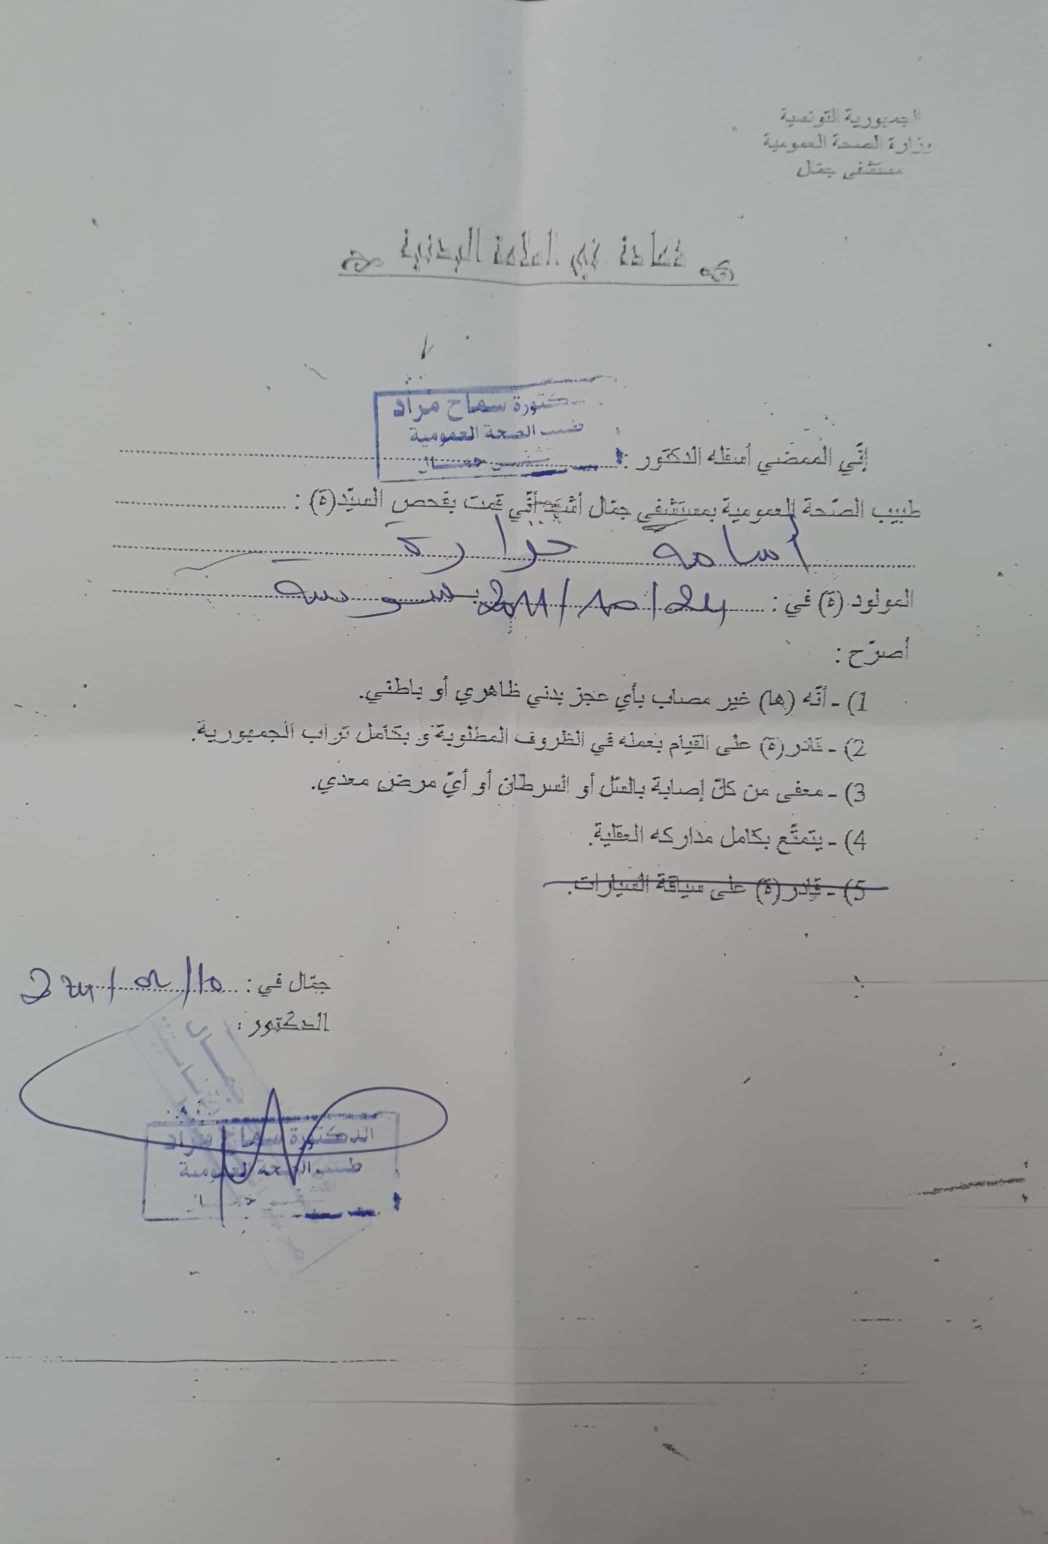 الجمهورية التونسية
وزارة الصحة العمومية
مستشفى جمّال
شهادة في السلامة البدنية
الدكتورة سماح مراد
طبيب الصحة العمومية
مستشفى جمال
إنّي الممضي أسفله الدكتور :
طبيب الصّحة العمومية بمستشفى جمّال أشهد أنّي قمت بفحص السيّد(ة) :
أسامة
المولود (ة) في : 24/10/2011 بسوسة
أصرّح :
1) - أنّه (ها) غير مصاب بأي عجز بدني ظاهري أو باطني.
2) - قادر (ة) على القيام بعمله في الظروف المطلوبة و بكامل تراب الجمهورية.
3) - معفى من كلّ إصابة بالسّل أو السرطان أو أيّ مرض معدي.
4) - يتمتّع بكامل مداركه العقلية.
5) - قادر (ة) على سياقة السيارات.
جمّال في :
الدكتور :
الدكتورة سماح مراد
طبيب الصحة العمومية